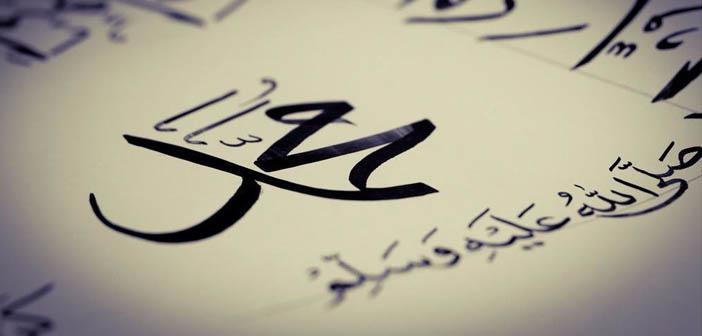 محمد
صَلَّى اللَّهُ عَلَيْهِ وَسَلَّمَ